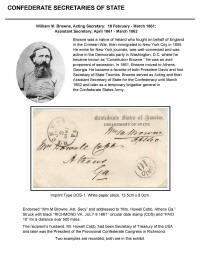 CONFEDERATE SECRETARIES OF STATE
William M. Browne, Acting Secretary: 18 February - March 1861;
Assistant Secretary: April 1861 - March 1862
Browne was a native of Ireland who fought on behalf of England
in the Crimean War, then immigrated to New York City in 1855.
He wrote for New York journals, was well connected and was
active in the Democratic party in Washington, D.C. where he
became known as "Constitution Browne." He was an avid
proponent of secession. In 1861, Browne moved to Athens,
Georgia. He became a favorite of both President Davis and first
Secretary of State Toombs. Browne served as Acting and then
Assistant Secretary of State for the Confederacy until March
1862 and later as a temporary brigadier general in
the Confederate States Army.
Confederate States of America,
DEPARTMENT OF STATE.
Wm M Browne
Mrs Howell Cobb
Athens
Ga
Imprint Type DOS-1. White paper stock, 13.5cm x 8.0cm.
Endorsed "Wm M Browne, Ast. Secy" and addressed to "Mrs. Howell Cobb, Athens Ga."
Struck with black "RICHMOND VA. JUL? 9 1861" circular date stamp (CDS) and "PAID
10" for a distance over 500 miles.
The recipient's husband, Mr. Howell Cobb, had been Secretary of Treasury of the USA
and later was the President of the Provisional Confederate Congress in Richmond.
Two examples are recorded; both are in the exhibit.